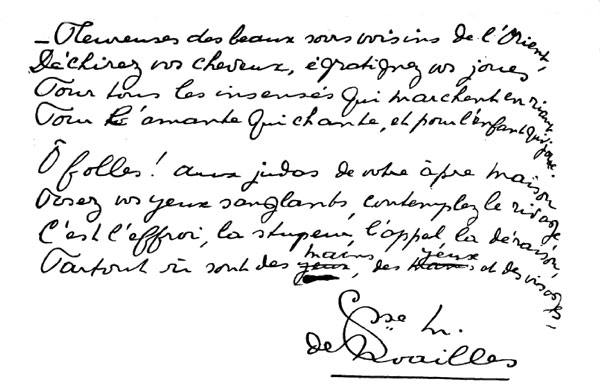 — Pleureuses des beaux soirs voisins de l'Orient,
Déchirez vos cheveux, égratignez vos joues
Pour tous les insensés qui marchent en riant
Pour l'amante qui chante, et pour l'enfant qui joue.
Ô folles ! aux judas de votre âpre maison
Posez vos yeux sanglants, contemplez le rivage
C'est l'effroi, la stupeur, l'appel, la déraison,
Partout où sont des mains, des yeux et des visages—
Csse M.
de Noailles